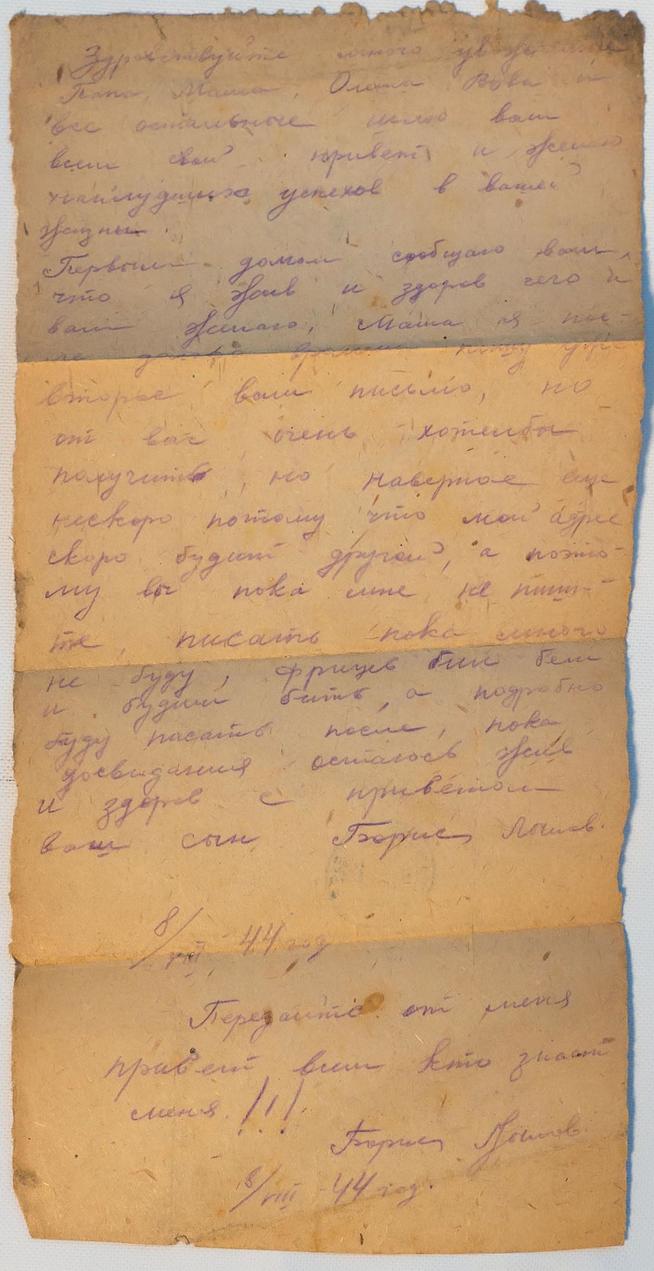 Здравствуйте много уважаемые
Папа, Мама, Оля Вова и
все остальные шлю вам
всем свой привет и желаю
наилудших успехов в вашей
жизни.
Первым долгом сообщаю вам,
что я жив и здоров чего и
вам желаю, Мама я пос-
ле долгого времени пишу уже
второе вам письмо, но
от вас очень хотелбы
получить, но наверное еще
нескоро потому что мой адрес
скоро будит другой, а поэто-
му вы пока мне не пиши-
те, писать пока много
не буду, фрицев били бем
и будим бить, а подробно
буду писать после, пока
досвидания остаюсь жив
и здоров с приветом
ваш сын Борис
8/VIII 44 год
Передайте от меня
привет всем кто знает
меня!!!
Борис
8/VIII-44 год.